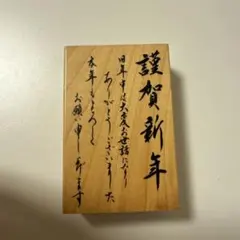 謹賀新年
旧年中は大変お世話になり
ありがとうございました
本年もよろしく
お願い申し上げます